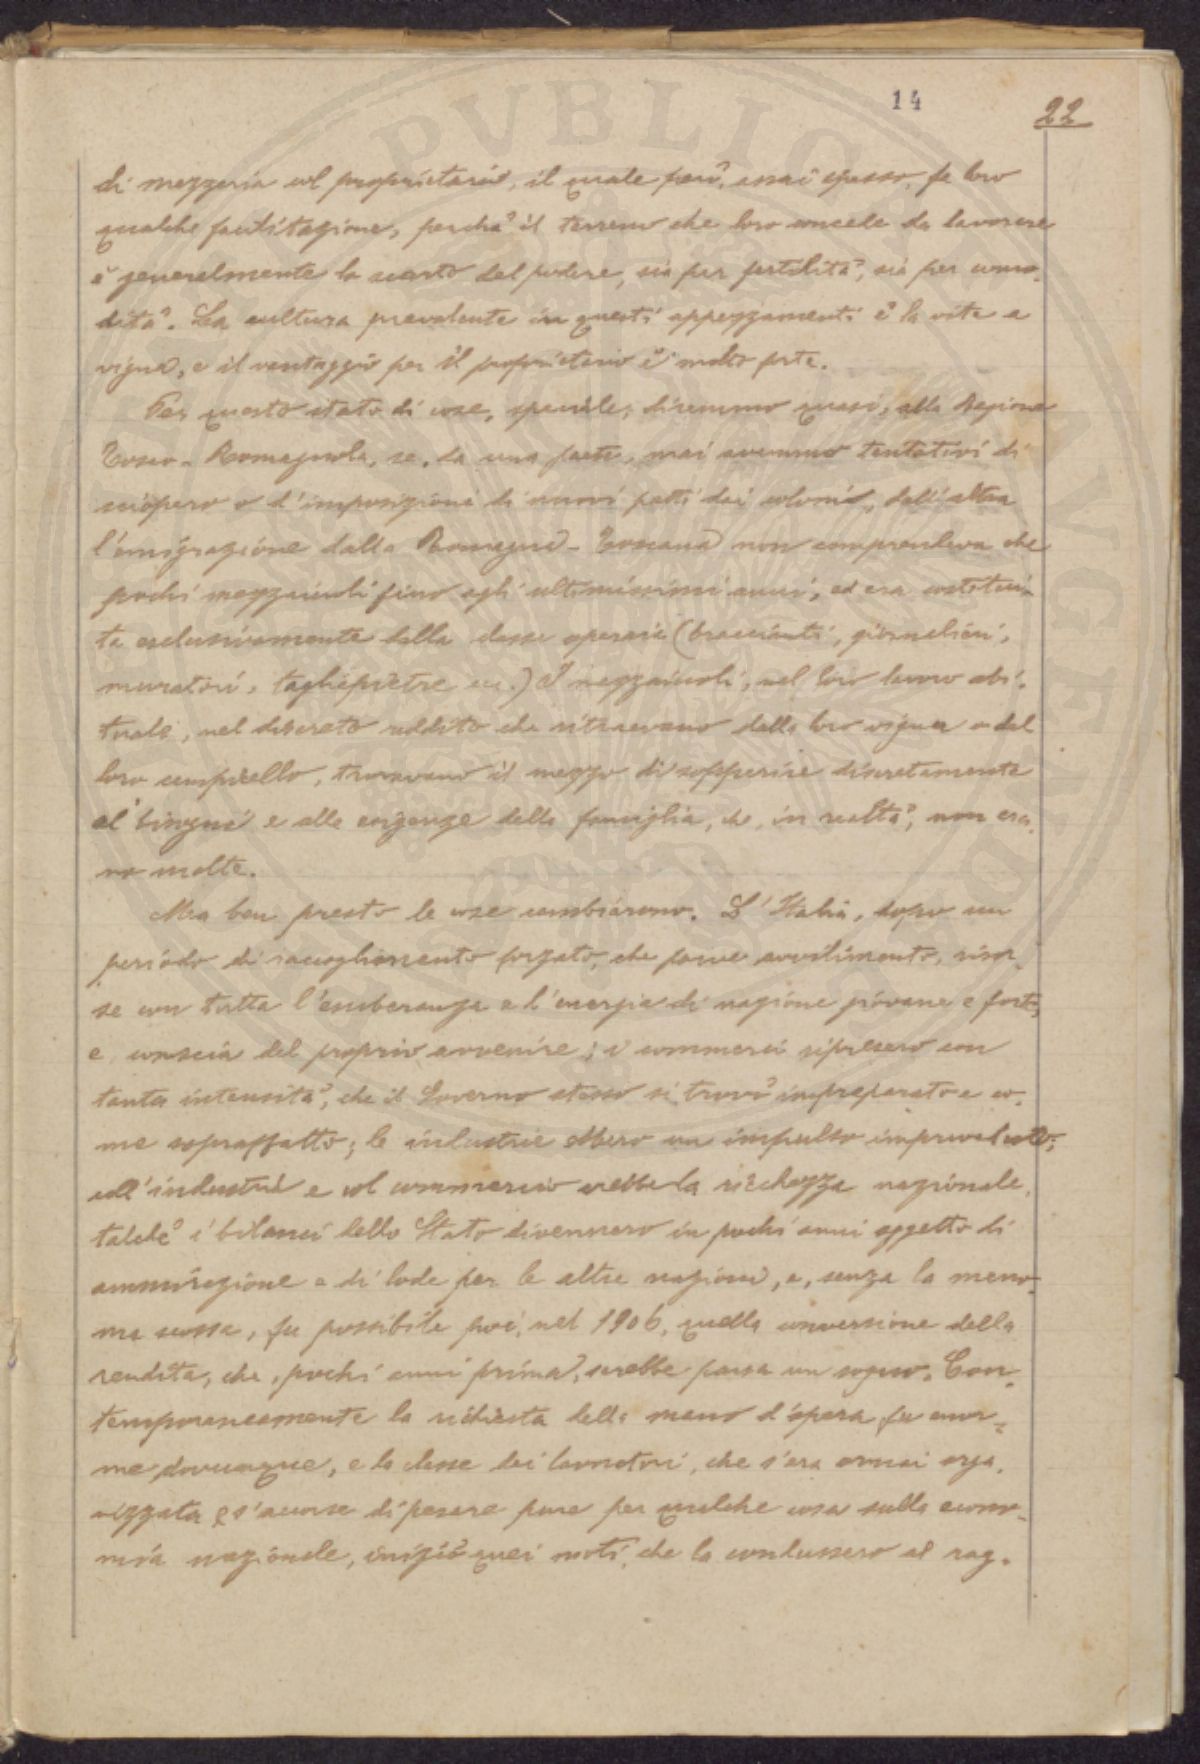 14
22
di mezzeria col proprietario, il quale però, assai spesso, fa loro
qualche facilitazione, perchè il terreno che loro concede da lavorare
è generalmente lo scarto del podere, sia per fertilità, sia per como-
dità. La cultura prevalente in questi appezzamenti è la vite a
vigna, e il vantaggio per il proprietario è molto forte.
Per questo stato di cose, speciale, diremmo quasi, alla Regione
Tosco-Romagnola, se, da una parte, mai avemmo tentativi di
sciopero o d'imposizioni di nuovi patti dai coloni, dall'altra
l'emigrazione dalla Romagna-Toscana non comprendeva che
pochi mezzaiuoli fino agli ultimissimi anni, ed era costitui-
ta esclusivamente dalla classe operaia (braccianti, giornalieri,
muratori, tagliapietre ecc.) I mezzaiuoli, nel loro lavoro abi-
tuale, nel discreto reddito che ritraevano dalla loro vigna o dal
loro campicello, trovavano il mezzo di sopperire discretamente
ai bisogni e alle esigenze della famiglia, che, in realtà, non era-
no molte.
Ma ben presto le cose cambiarono. L'Italia, dopo un
periodo di raccoglimento forzato, che parve avvilimento, risor-
se con tutta l'esuberanza e l'energia di nazione giovane e forte,
e conscia del proprio avvenire; i commerci ripresero con
tanta intensità, che il Governo stesso si trovò impreparato e co-
me sopraffatto; le industrie ebbero un impulso impreveduto;
coll'industria e col commercio crebbe la ricchezza nazionale,
talchè i bilanci dello Stato divennero in pochi anni oggetto di
ammirazione e di lode per le altre nazioni, e, senza la meno-
ma scossa, fu possibile poi, nel 1906, quella conversione della
rendita, che, pochi anni prima, sarebbe parsa un sogno. Con-
temporaneamente la richiesta della mano d'opera fu enor-
me dovunque, e la classe dei lavoratori, che s'era ormai orga-
nizzata e s'accorse di pesare pure per qualche cosa sulla econo-
mia nazionale, iniziò quei moti che la condussero al rag-